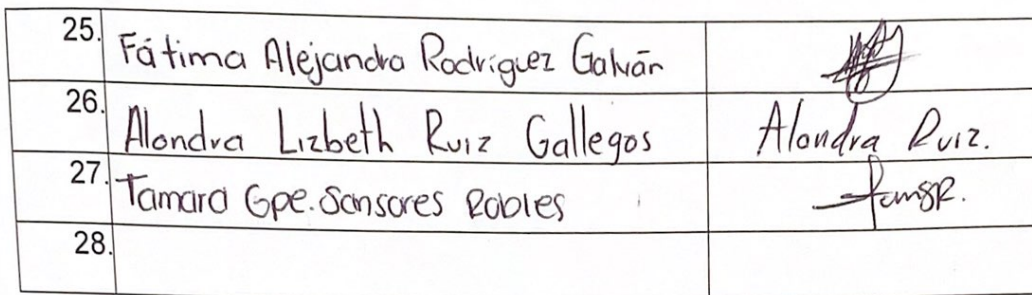 25. Fátima Alejandra Rodríguez Galván
26. Alondra Lizbeth Ruiz Gallegos Alondra Ruiz.
27. Tamara Gpe. Sansores Robles
28.